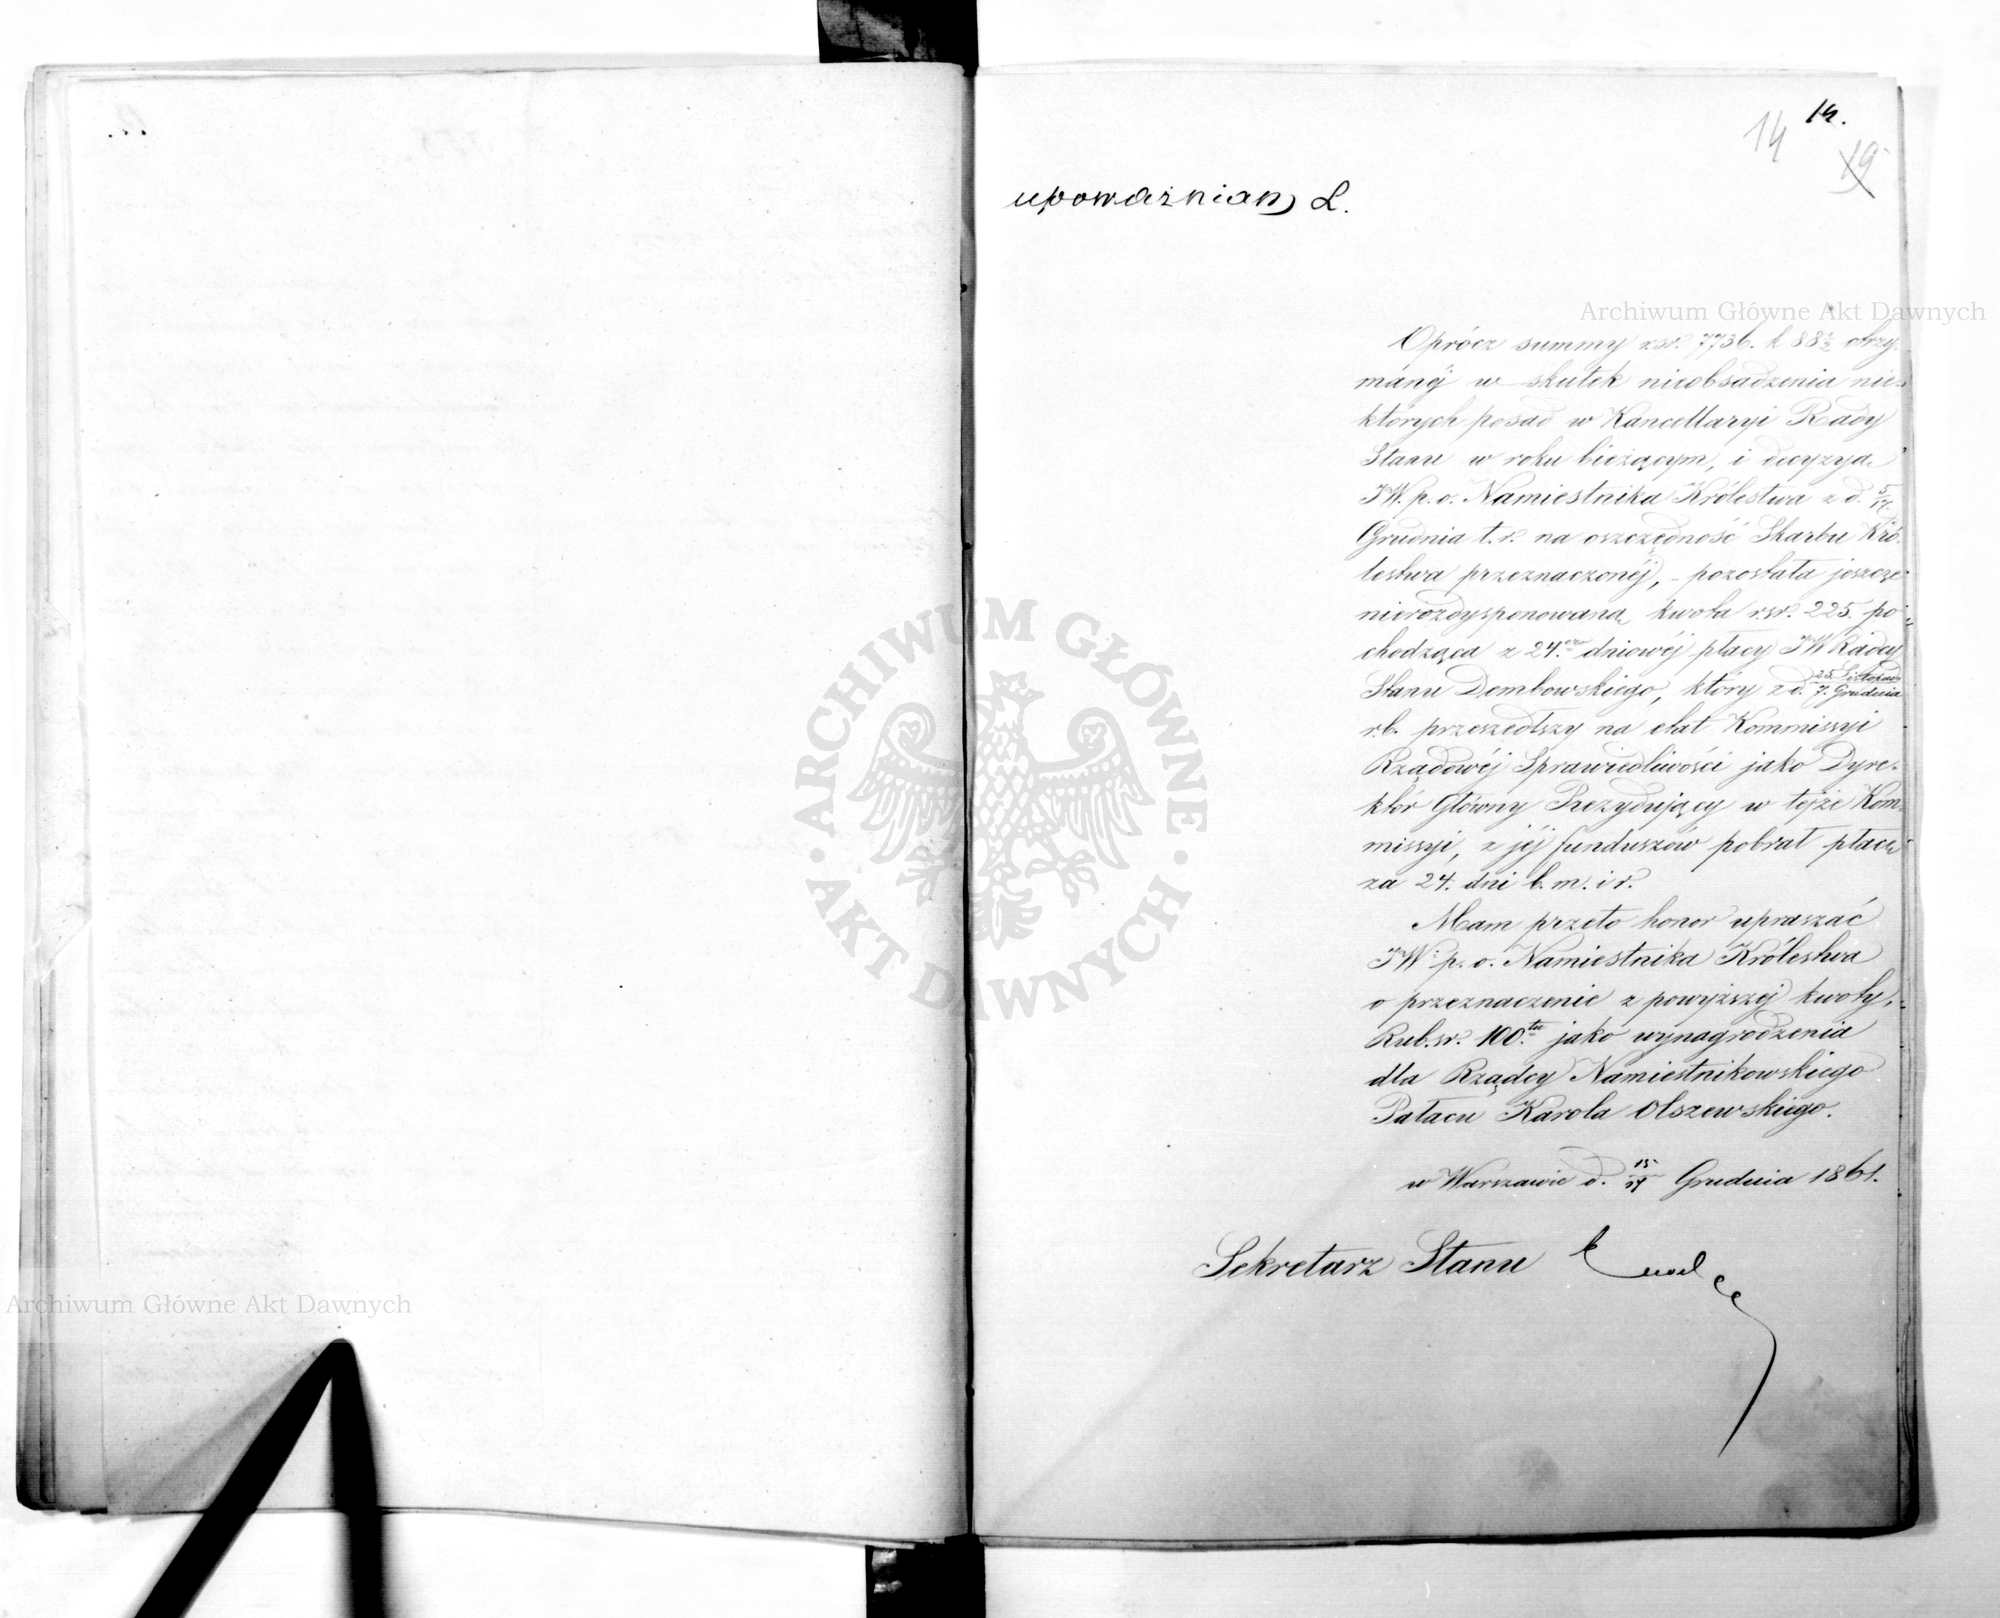 14.
14
19
upoważniam L.
Archiwum Główne Akt Dawnych
Oprócz summy rsr. 7736. k 88½ otrzy-
manéj w skutek nieobsadzenia nie-
których posad w Kancellaryi Rady
Stanu w roku bieżącym, i decyzyą
JW. p. o. Namiestnika Królestwa z d. 5/17.
Grudnia t. r. na oszczędność Skarbu Kró-
lestwa przeznaczonéj, - pozostała jeszcze
nierozdysponowaną kwota rsr. 225. po-
chodząca z 24.ero dniowéj płacy JW Radcy
Stanu Dembowskiego, który z d. 25. Listopada/7. Grudnia
r. b. przeszedłszy na etat Kommissyi
Rządowéj Sprawiedliwości jako Dyre-
któr Główny Prezydujący w tejże Kom-
missyi, z jéj funduszów pobrał płacę
za 24. dni b. m. i r.
Mam przeto honor upraszać
JW. p. o. Namiestnika Królestwa
o przeznaczenie z powyższej kwoty,
Rub. sr. 100.tu jako wynagrodzenia
dla Rządcy Namiestnikowskiego
Pałacu Karola Olszewskiego.
w Warszawie d. Grudnia 1861.
Sekretarz Stanu
ARCHIWUM GŁÓWNE
AKT DAWNYCH
Archiwum Główne Akt Dawnych